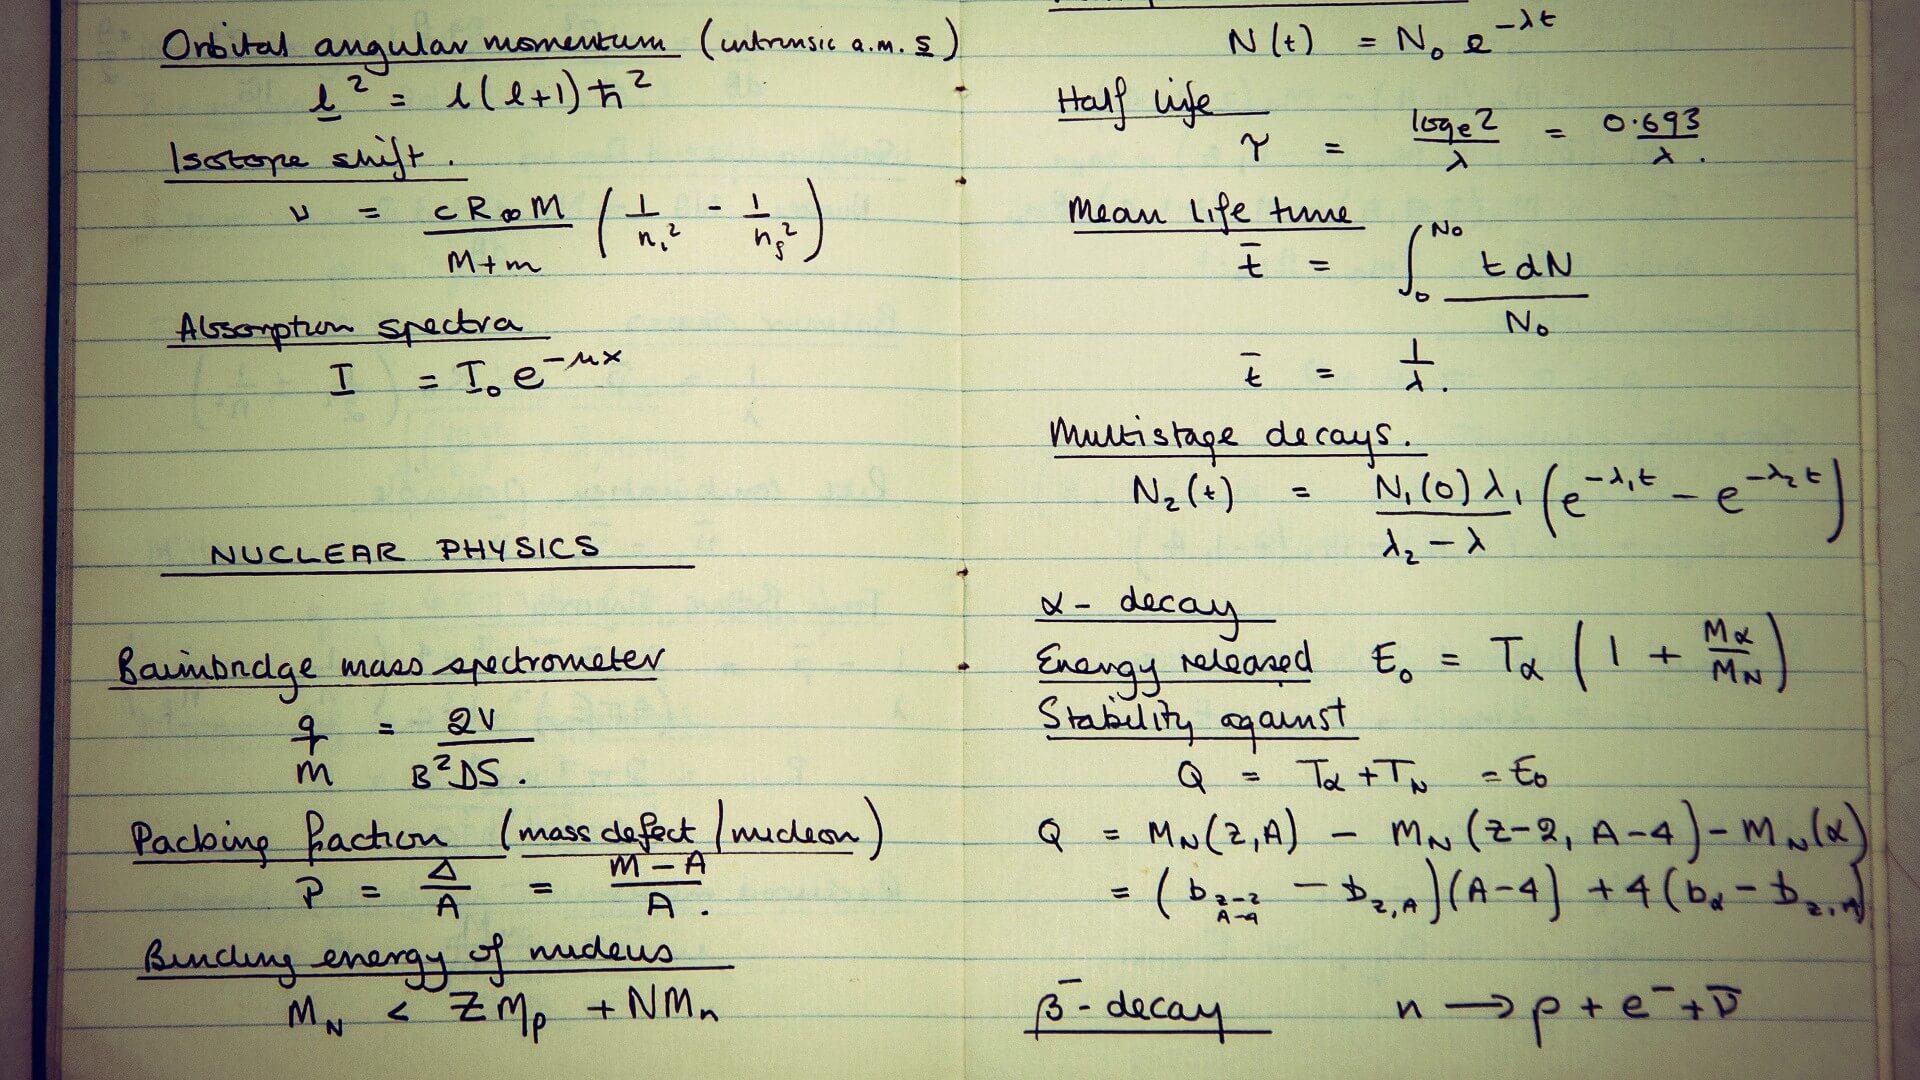 Orbital angular momentum (intrinsic a.m. s)
l² = l(l+1)ħ²
Isotope shift.
ν = cR∞M / M+m (1/n₁² - 1/n_f²)
Absorption spectra
I = I₀e^-μx
NUCLEAR PHYSICS
Bainbridge mass spectrometer
q/m = 2V / B²DS.
Packing fraction (mass defect / nucleon)
P = Δ/A = M-A / A.
Binding energy of nucleus
M_N < ZM_p + NM_n
N(t) = N₀ e^-λt
Half life
τ = log_e 2 / λ = 0.693 / λ.
Mean life time
t̄ = ∫₀^N₀ t dN / N₀
t̄ = 1/λ.
Multistage decays.
N₂(t) = N₁(0)λ₁ / λ₂-λ (e^-λ₁t - e^-λ₂t)
α- decay
Energy released E₀ = Tα (1 + Mα/M_N)
Stability against
Q = Tα + T_N = E₀
Q = M_N(Z,A) - M_N(Z-2, A-4) - M_N(α)
= (b_Z-2,A-4 - b_Z,A)(A-4) + 4(bα - b_Z,A)
β⁻-decay n → p + e⁻ + ν̄